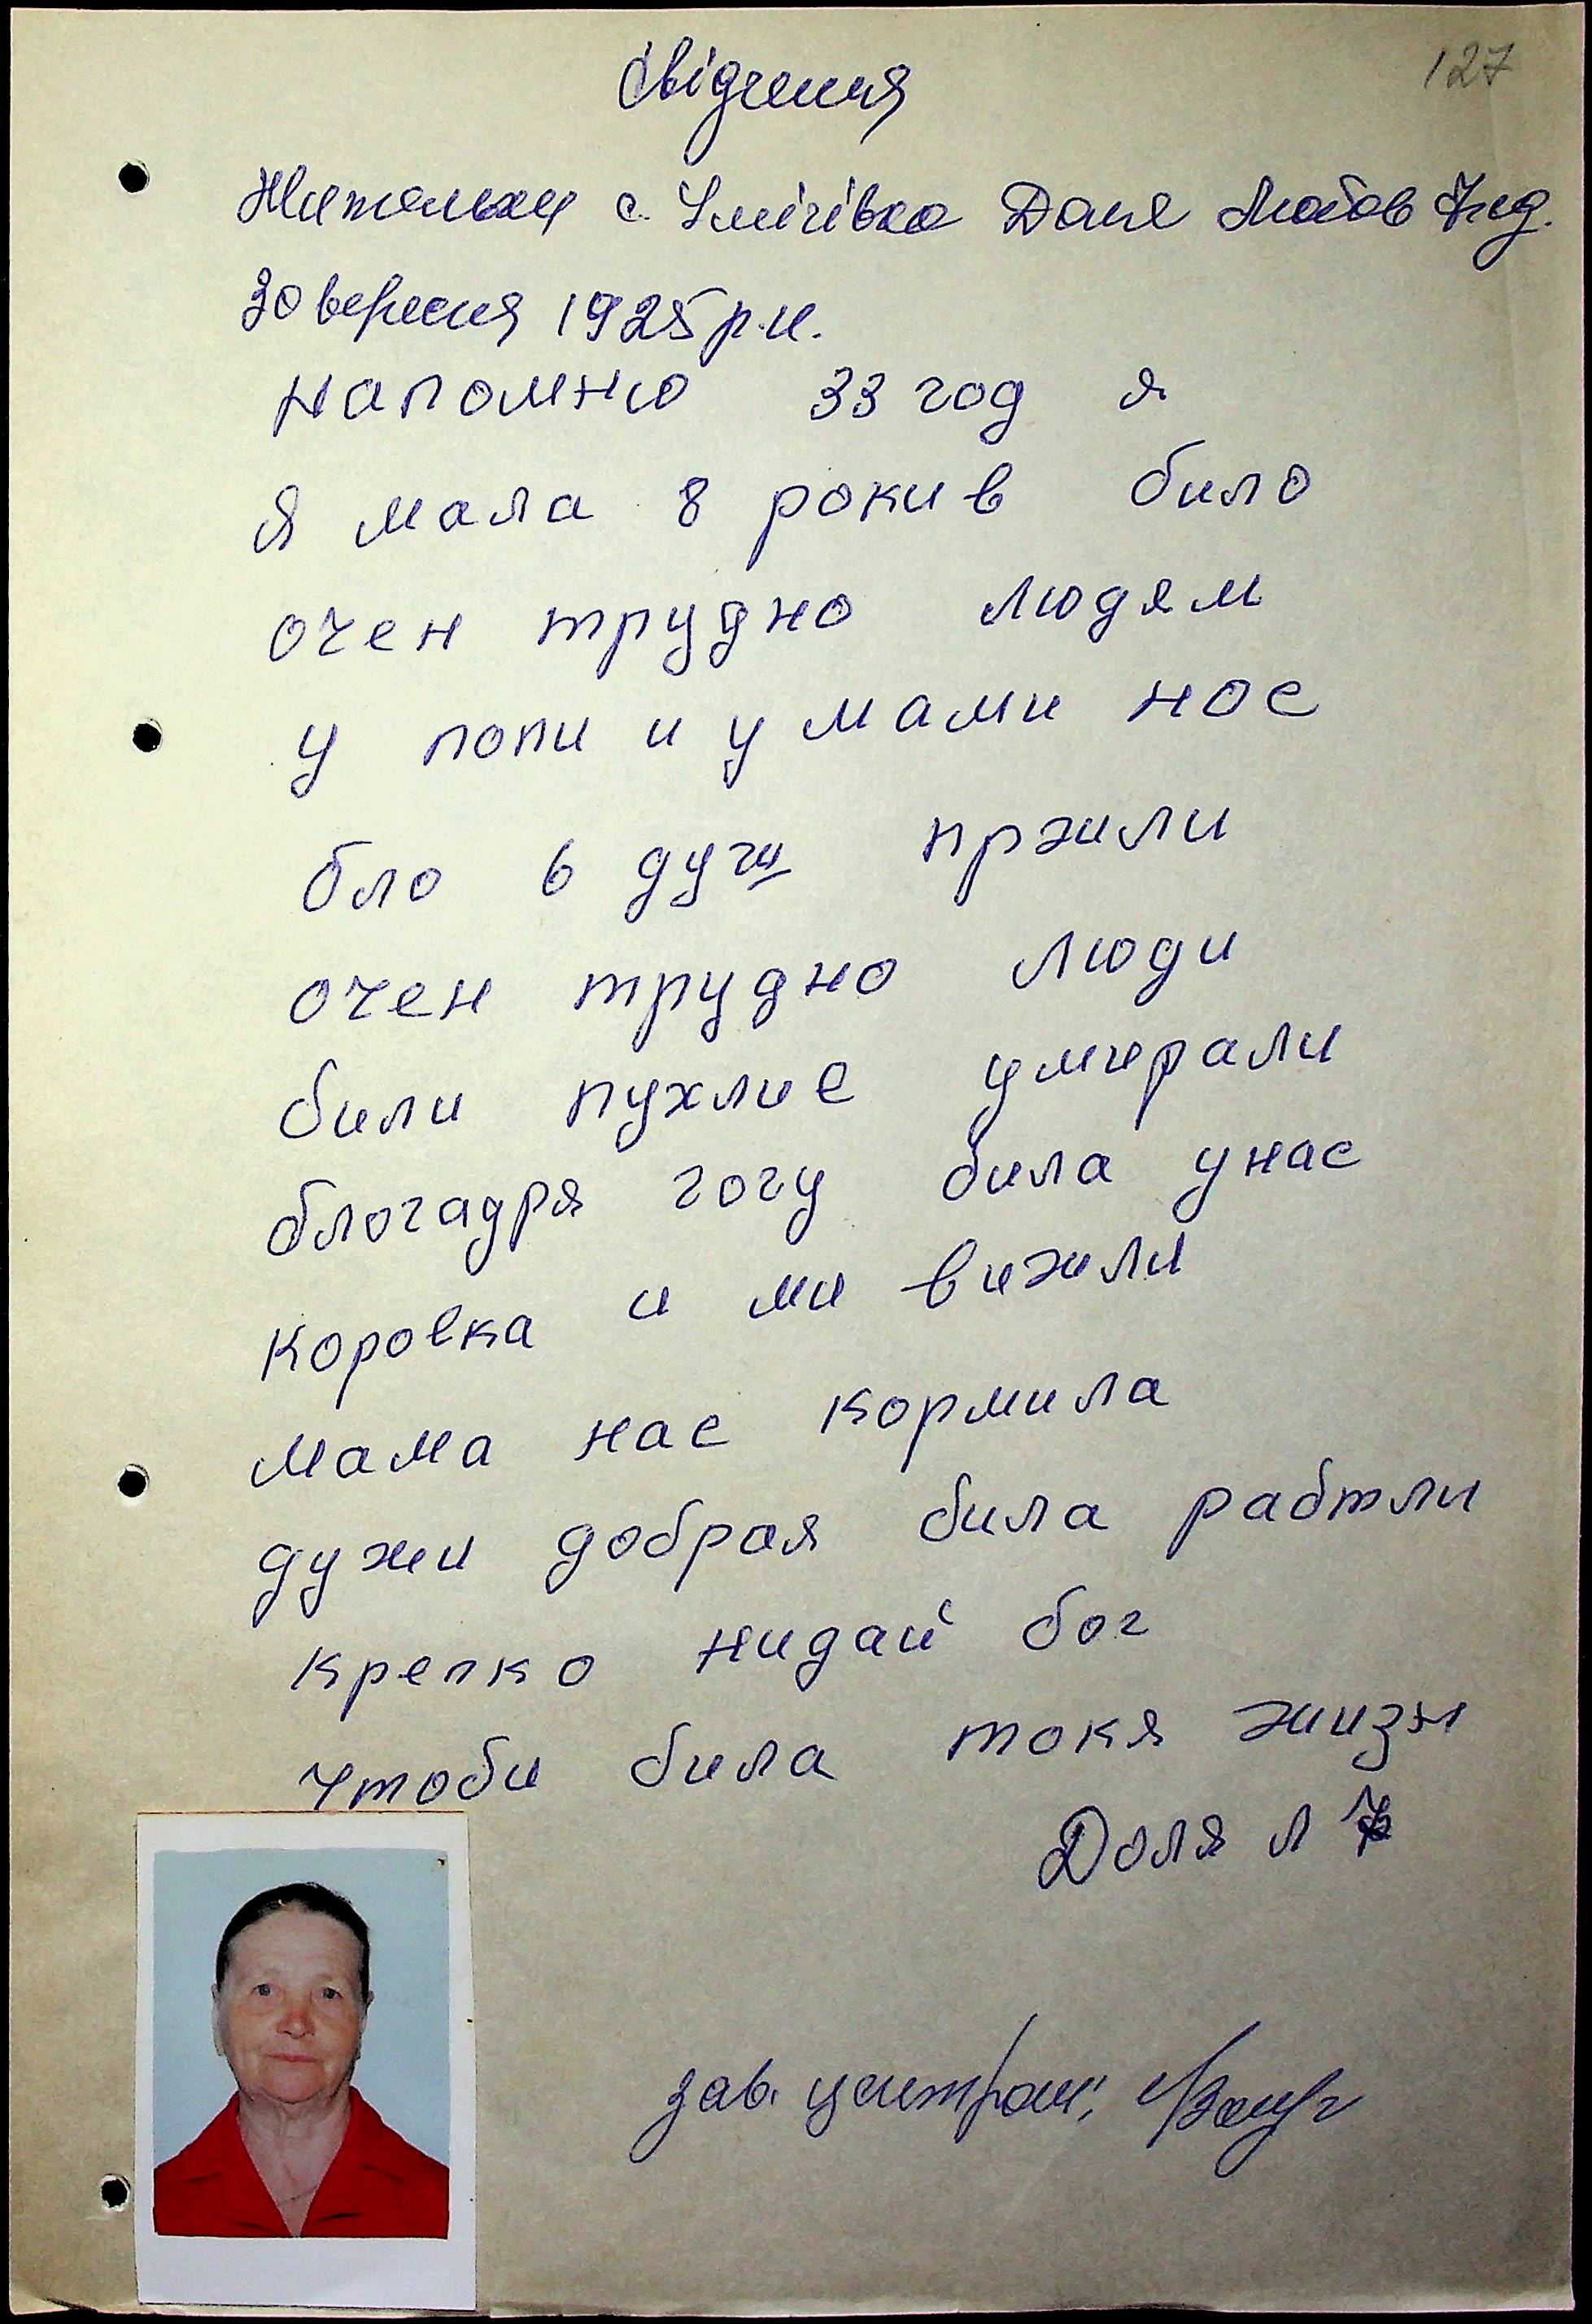 127
Свідчення
Жительки с. Улічівка Доля Любов
30 вересня 1925 р.н.
Напомню 33 год я
я мала 8 рокив било
очен трудно людям
у попи и у мами нос
бло 6 душ пржили
очен трудно люди
били пухлие умирали
блогадря гогу била унас
коровка и ми вижили
мама нас кормила
дужи добрая била рабтли
крепко нидай бог
чтоби била токя жиизн
Доля Л
зав. центром: